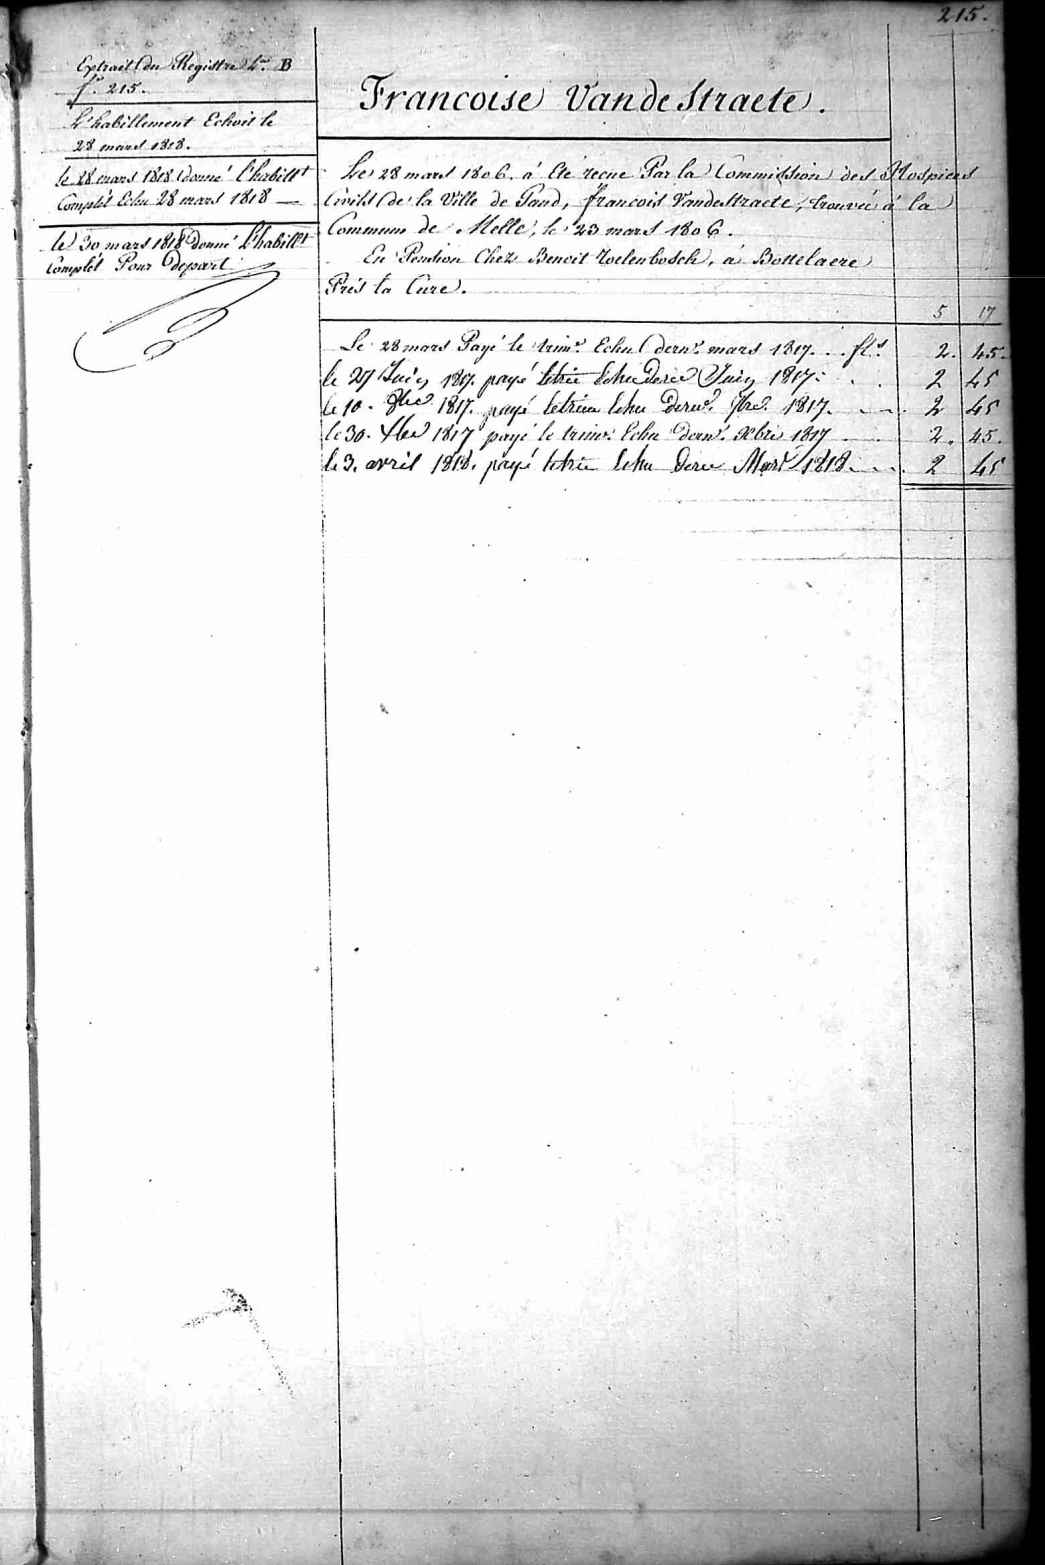 215.
Extrait du Registre L.ra B
f.o 215.
L'habillement Echoit le
28 mars 1818.
le 28 mars 1818 donné l'habillt
Complét Echu 28 mars 1818 —
le 30 mars 1818 donné l'habillt
Complét Pour depart
Francoise Vande Straete.
Le 28 mars 1806. à été recue Par la Commission des Hospices
Civils de la Ville de Gand, francois Vandestraete, trouvée à la
Commune de Melle, le 23 mars 1806.
En Pension Chez Benoit Roelenbosch, à Bottelaere
Prés la Cure.
5 17
Le 28 mars Payé le trim.e Echu dern.r mars 1817 . . . fl.s 2. 45.
le 27 Juin 1817. payé letrim Echu derer Juin 1817: . . 2 45
le 10. 8bre 1817. payé letrim Echu derer. 7bre. 1817. . . . 2 45
le 30. Xbre 1817 payé le trime: Echu dern.r Xbre 1817 . . . 2. 45.
le 3. avril 1818. payé letrim Echu derer Mars 1818 . . . 2 45